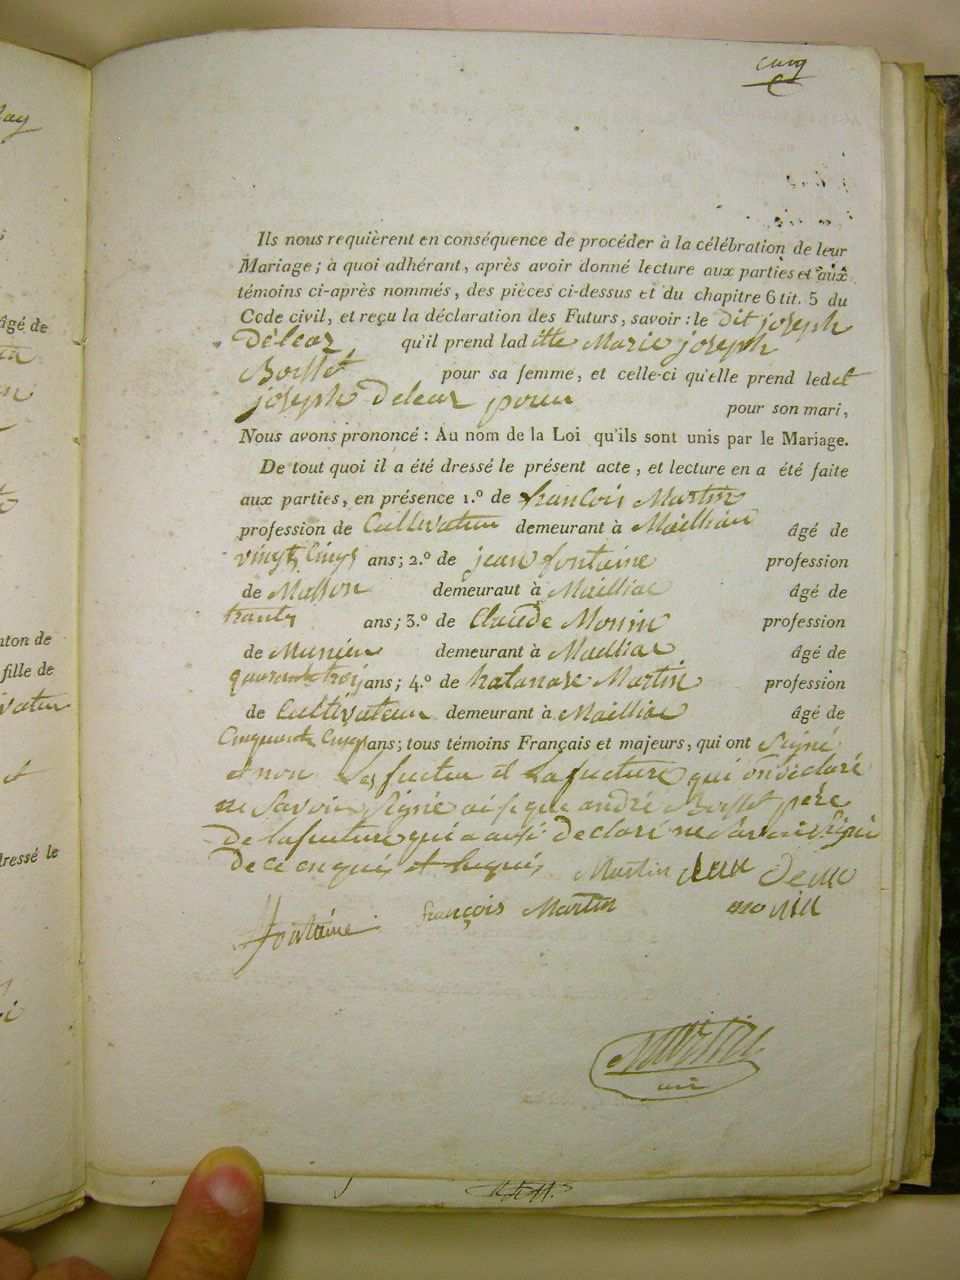 cinq
Ils nous requièrent en conséquence de procéder à la célébration de leur
Mariage ; à quoi adhérant, après avoir donné lecture aux parties et aux
témoins ci-après nommés, des pièces ci-dessus et du chapitre 6 tit. 5 du
Code civil, et reçu la déclaration des Futurs, savoir : le dit joseph
Déléaz, qu'il prend laditte Marie joseph
Boisset pour sa femme, et celle-ci qu'elle prend ledit
joseph Deleaz pour pour son mari,
Nous avons prononcé : Au nom de la Loi qu'ils sont unis par le Mariage.
De tout quoi il a été dressé le présent acte, et lecture en a été faite
aux parties, en présence 1.º de françois Martin
profession de Cultivateur demeurant à Mailliau âgé de
vingt Cinqs ans ; 2.º de jean fontaine profession
de Masson demeurant à Mailliac âgé de
trante ans ; 3.º de Claude Monin profession
de Munier demeurant à Mailliac âgé de
quarante troij ans ; 4.º de Martin profession
de Cultivateur demeurant à Mailliac âgé de
Cinquante Cinqs ans ; tous témoins Français et majeurs, qui ont Signé
et non Les futeur et La futture qui on déclaré
ne Savoir Signé que andré Boisset père
De la future qui a aussi Declaré ne Savoir Signé
De ce enquis et Requis Martin
fontaine françois Martin monin
âgé de
nton de
fille de
vateur
dressé le